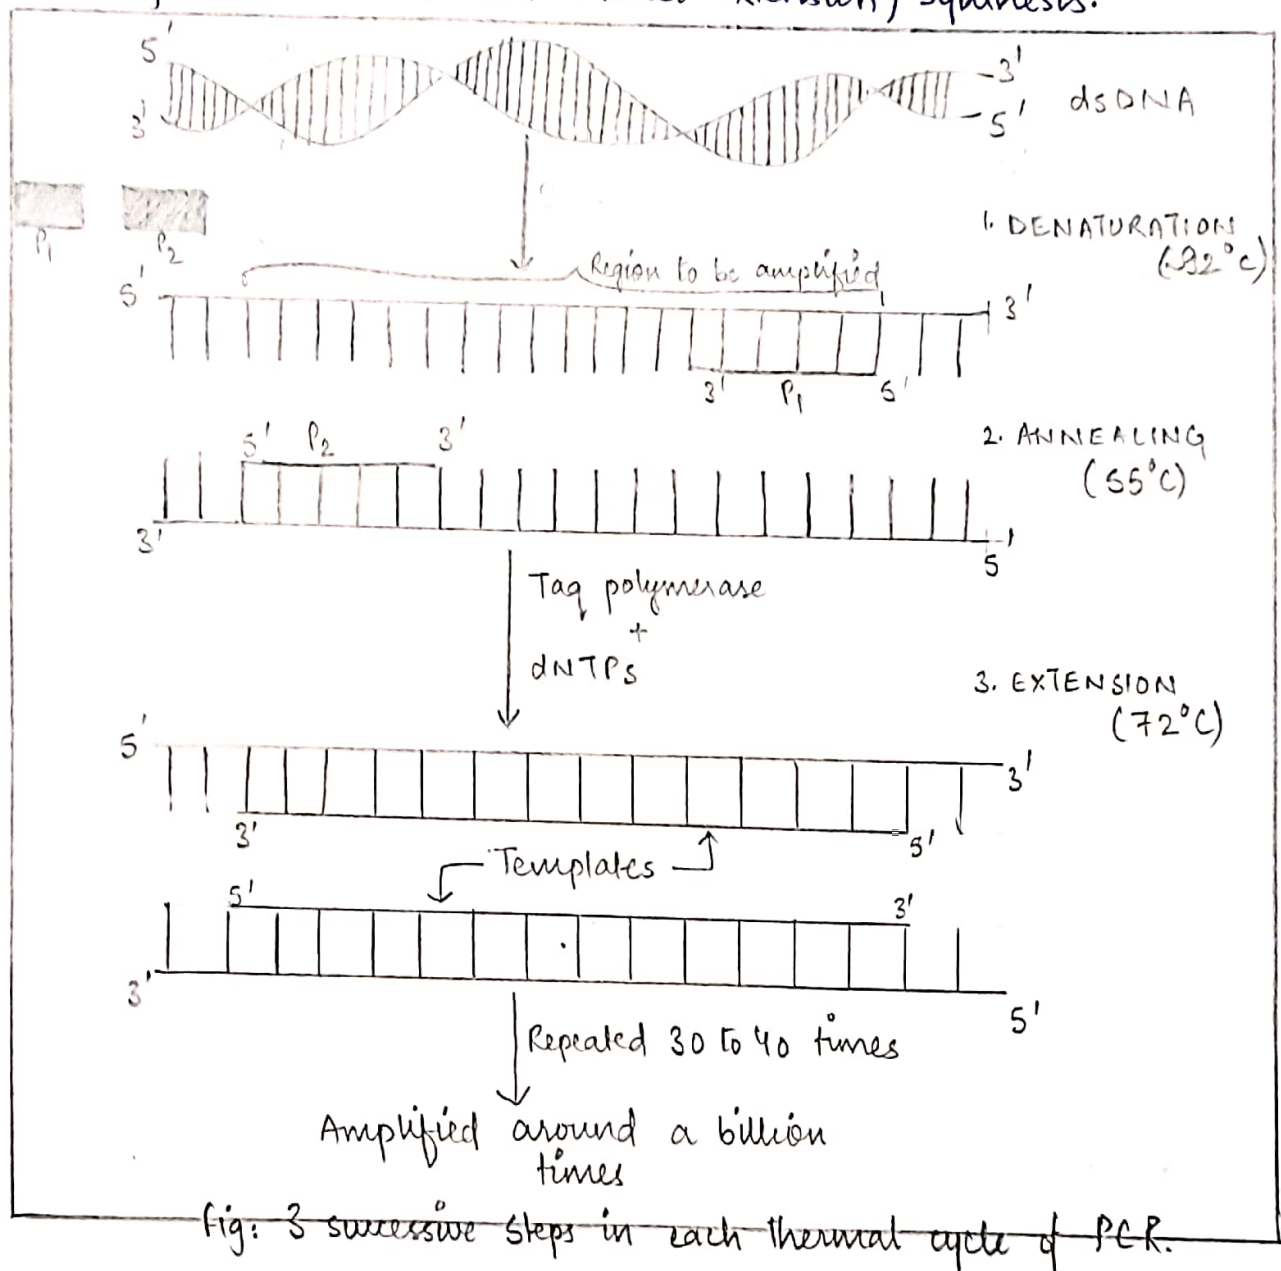 synthesis.
5' -3' dsDNA
3' -5'
P1 P2
1. DENATURATION
(92°C)
Region to be amplified
5' 3'
3' P1 5'
5' P2 3'
2. ANNEALING
(55°C)
3' 5'
Taq polymerase
+
dNTPs
3. EXTENSION
(72°C)
5' 3'
3' 5'
Templates
5' 3'
3' 5'
Repeated 30 to 40 times
Amplified around a billion
times
fig: 3 successive steps in each thermal cycle of PCR.